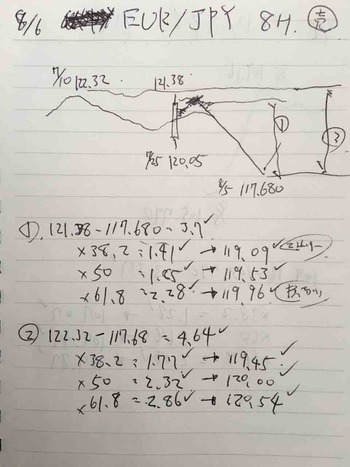 8/6 EUR/JPY 8H. 売
7/10 122.32 121.38
7/25 120.05
① ②
8/5 117.680
① 121.38-117.680=3.7✓
×38.2=1.41✓→119.09✓
×50=1.85✓→119.53✓
×61.8=2.28✓→119.96✓
② 122.32-117.68=4.64✓
×38.2=1.77✓→119.45✓
×50=2.32✓→120.00✓
×61.8=2.86✓→120.54✓